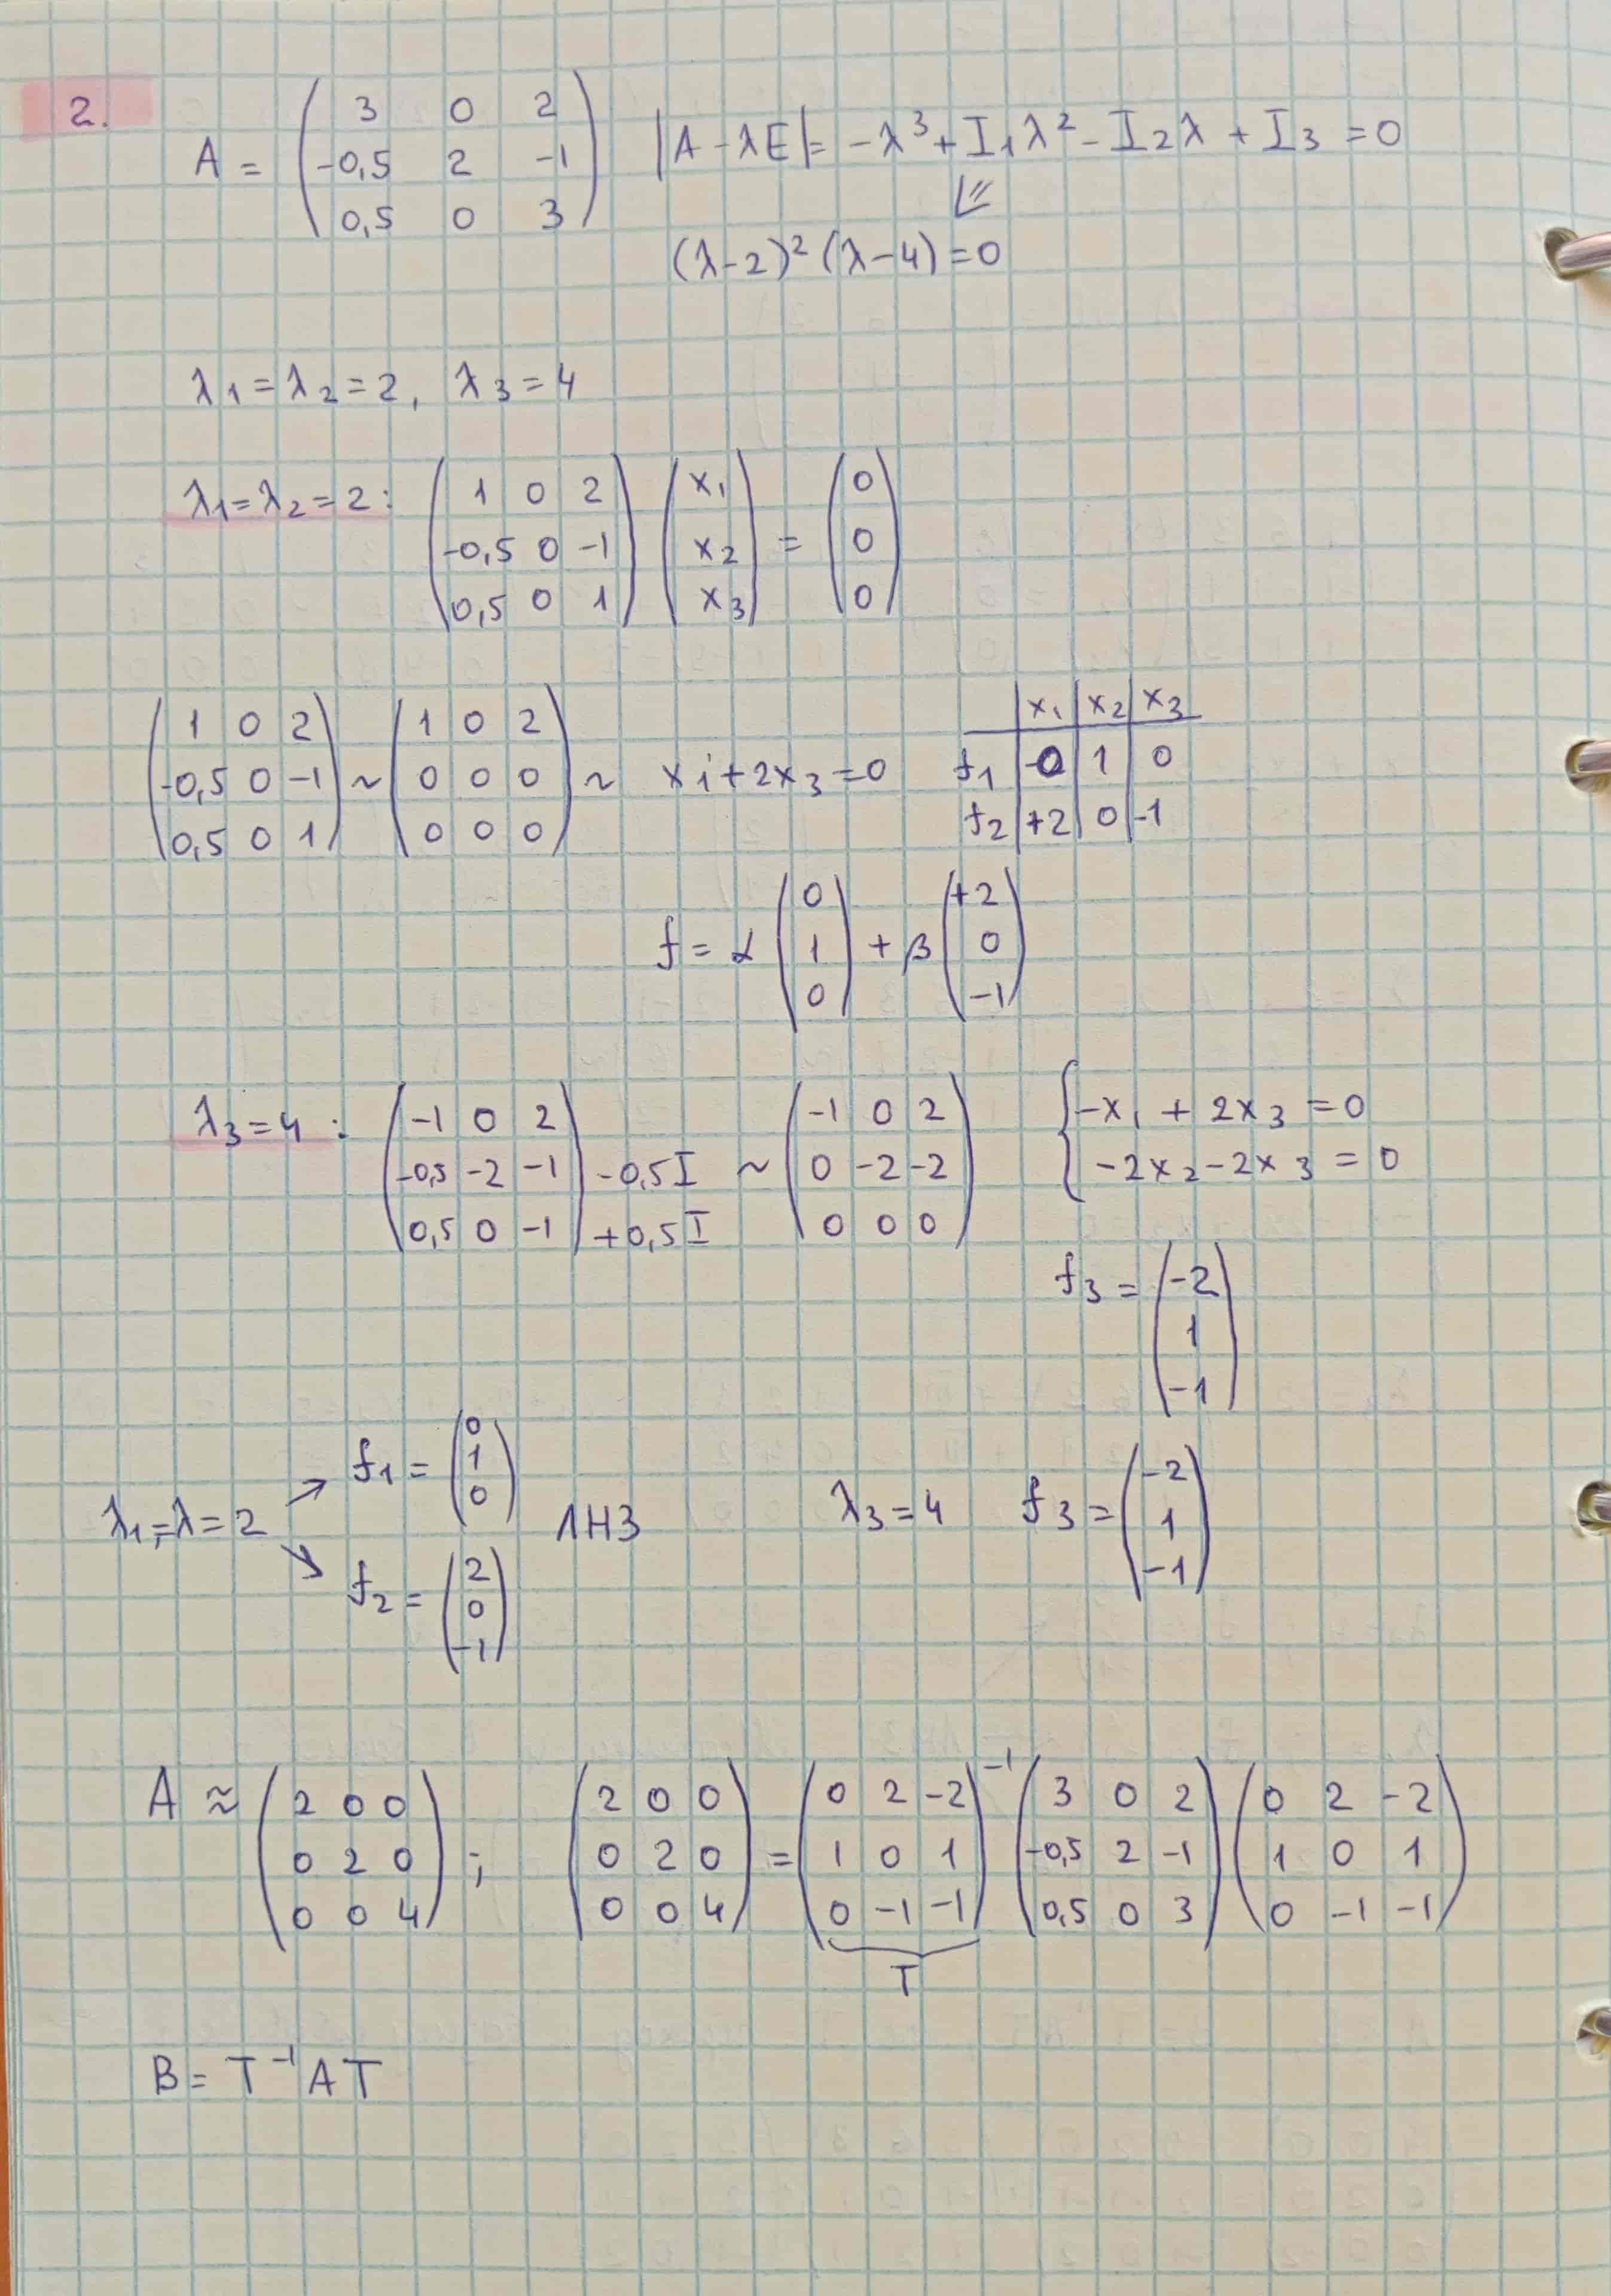 2.
A = ( 3 0 2 ; -0,5 2 -1 ; 0,5 0 3 ) |A - λE| = -λ³ + I₁λ² - I₂λ + I₃ = 0
⇙
(λ-2)² (λ-4) = 0
λ₁ = λ₂ = 2, λ₃ = 4
λ₁ = λ₂ = 2 : ( 1 0 2 ; -0,5 0 -1 ; 0,5 0 1 ) ( x₁ ; x₂ ; x₃ ) = ( 0 ; 0 ; 0 )
( 1 0 2 ; -0,5 0 -1 ; 0,5 0 1 ) ~ ( 1 0 2 ; 0 0 0 ; 0 0 0 ) ~ x₁ + 2x₃ = 0
| x₁ | x₂ | x₃
f₁ | -0 | 1 | 0
f₂ | +2 | 0 | -1
f = α ( 0 ; 1 ; 0 ) + β ( +2 ; 0 ; -1 )
λ₃ = 4 : ( -1 0 2 ; -0,5 -2 -1 ; 0,5 0 -1 ) -0,5 I +0,5 I ~ ( -1 0 2 ; 0 -2 -2 ; 0 0 0 ) { -x₁ + 2x₃ = 0 ; -2x₂ - 2x₃ = 0
f₃ = ( -2 ; 1 ; -1 )
λ₁,=λ = 2 ↗ f₁ = ( 0 ; 1 ; 0 ) ↘ f₂ = ( 2 ; 0 ; -1 ) ЛНЗ λ₃ = 4 f₃ = ( -2 ; 1 ; -1 )
A ≈ ( 2 0 0 ; 0 2 0 ; 0 0 4 ) ; ( 2 0 0 ; 0 2 0 ; 0 0 4 ) = ( 0 2 -2 ; 1 0 1 ; 0 -1 -1 )⁻¹ ( 3 0 2 ; -0,5 2 -1 ; 0,5 0 3 ) ( 0 2 -2 ; 1 0 1 ; 0 -1 -1 )
T
B = T⁻¹ A T